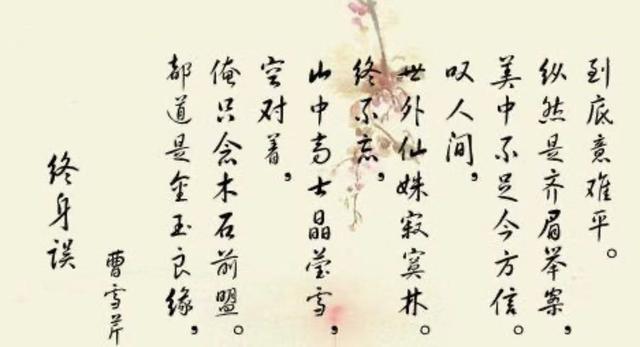 终身误
曹雪芹
都道是金玉良缘，
俺只念木石前盟。
空对着，
山中高士晶莹雪，
终不忘，
世外仙姝寂寞林。
叹人间，
美中不足今方信。
纵然是齐眉举案，
到底意难平。